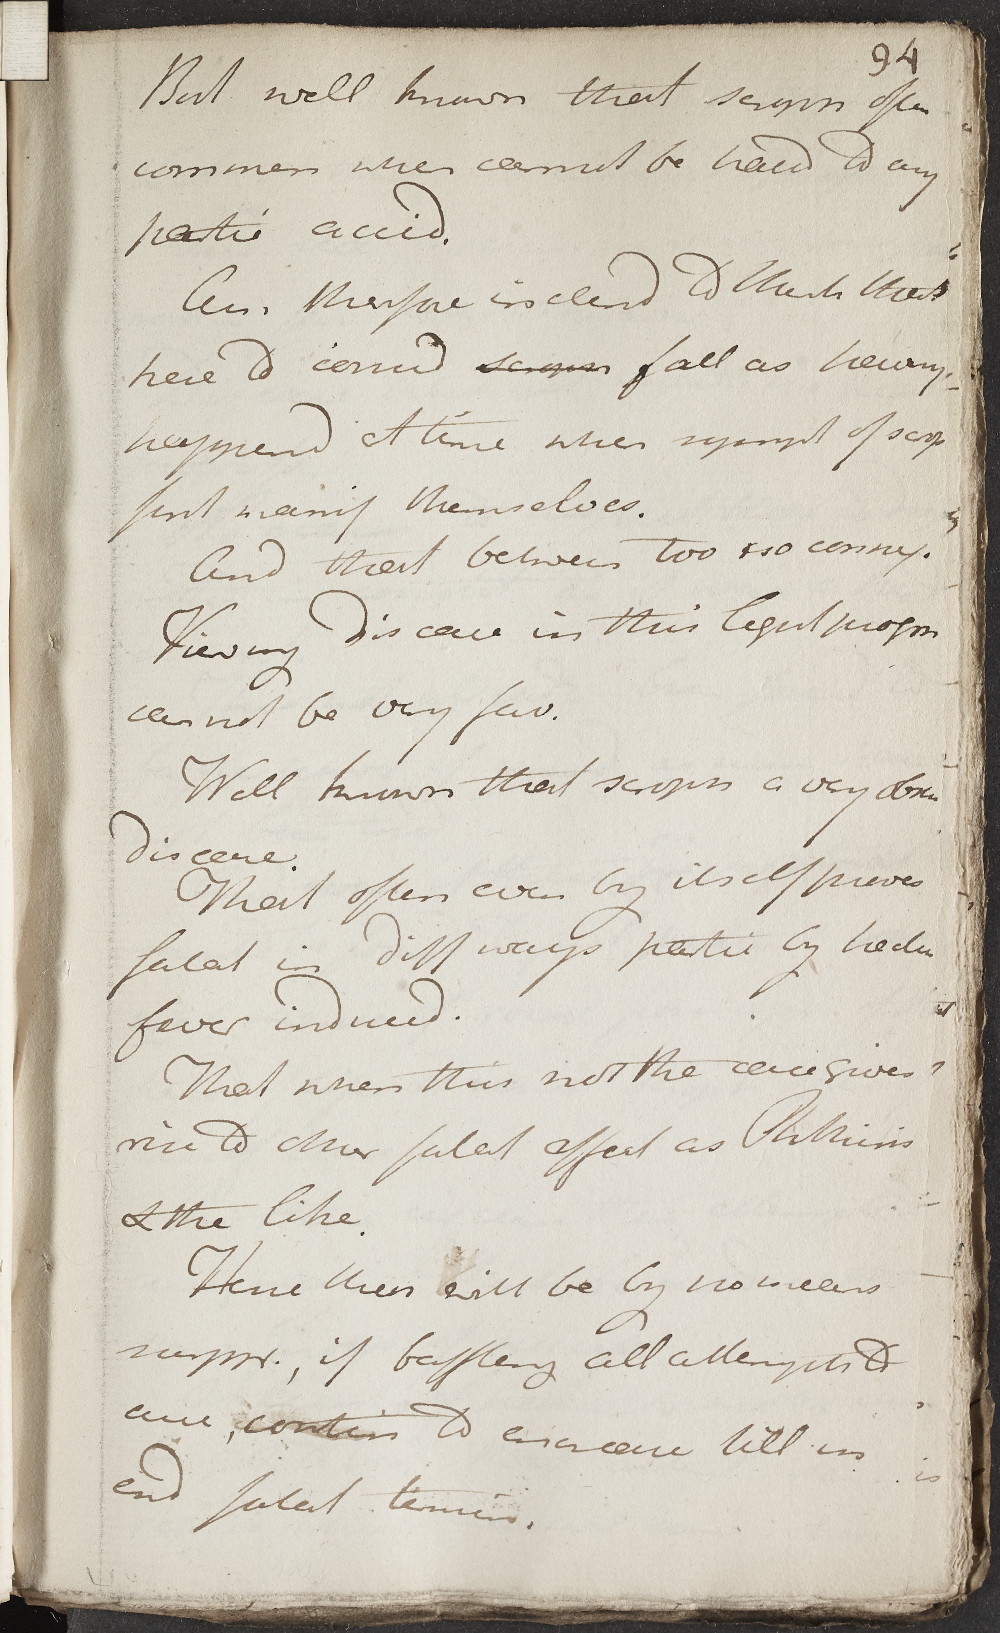 94
But well known that scroph often
commen when cannot be trac'd to any
partic accid.
Am therefore inclend to think that
here to coincid scroph fall as having
happend at time when sympt of scrop
first manif themselves.
And that between two no connex.
Viewing Disease in this light progn
cannot be very fav.
Well known that scroph a very obstin
disease.
That often even by itself proves
fatal in diff ways partic by hectic
fever induced.
That when this not the case gives
rise to other fatal affect as Phthisis
& the like.
Here then will be by no means
surpr., if baffling all attempts to
cure, contin to encrease till in
end fatal termin.